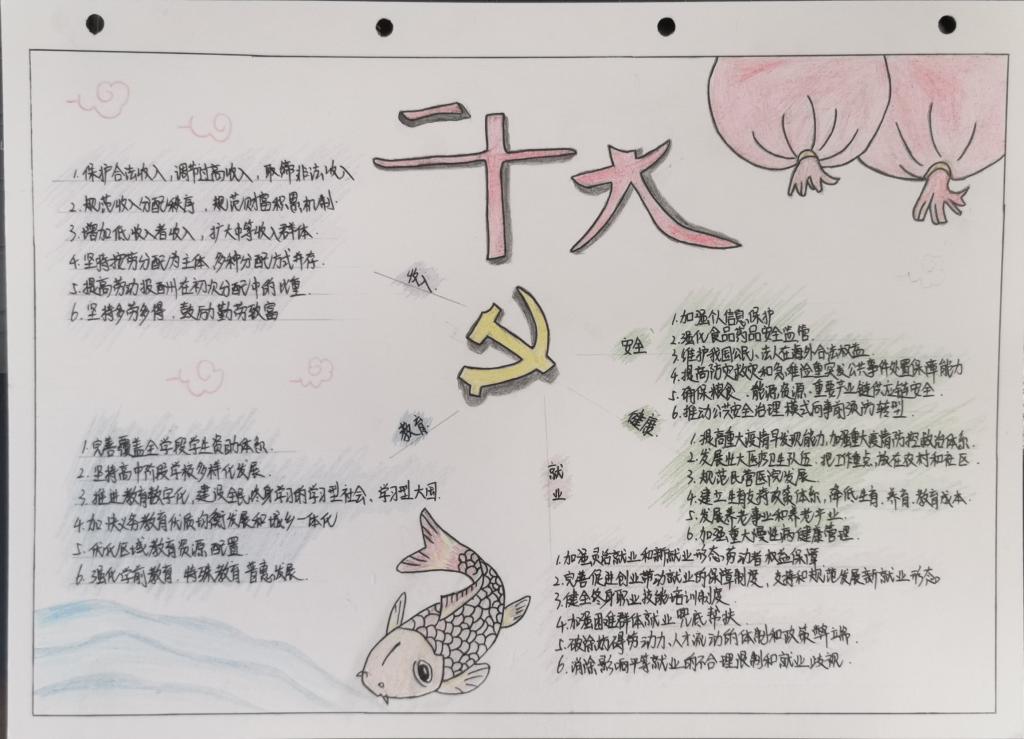 二十大
收入
1.保护合法收入,调节过高收入,取缔非法收入
2.规范收入分配秩序,规范财富积累机制.
3.增加低收入者收入,扩大中等收入群体.
4.坚持按劳分配为主体,多种分配方式并存.
5.提高劳动报酬在初次分配中的比重.
6.坚持多劳多得,鼓励勤劳致富
安全
1.加强个人信息保护
2.强化食品药品安全监管.
3.维护我国公民、法人在海外合法权益.
4.提高防灾救灾和急难险重突发公共事件处置保障能力
5.确保粮食、能源资源、重要产业链供应链安全.
6.推动公共安全治理模式向事前预防转型.
健康
1.提高重大疫情早发现能力,加强重大疫情防控救治体系.
2.发展壮大医疗卫生队伍,把工作重点放在农村和社区.
3.规范民营医院发展.
4.建立生育支持政策体系,降低生育、养育、教育成本.
5.发展养老事业和养老产业.
6.加强重大慢性病健康管理.
教育
1.完善覆盖全学段学生资助体系.
2.坚持高中阶段学校多样化发展.
3.推进教育数字化,建设全民终身学习的学习型社会、学习型大国.
4.加快义务教育优质均衡发展和城乡一体化
5.优化区域教育资源配置.
6.强化学前教育、特殊教育普惠发展.
就业
1.加强灵活就业和新就业形态劳动者权益保障
2.完善促进创业带动就业的保障制度,支持和规范发展新就业形态.
3.健全终身职业技能培训制度
4.加强困难群体就业兜底帮扶.
5.破除妨碍劳动力、人才流动的体制和政策弊端.
6.消除影响平等就业的不合理限制和就业歧视.